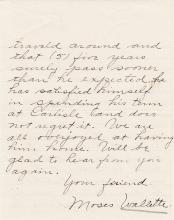 traveled around and
that (5) five years
surely pass sooner
than he expected he
has satisfied himself
in spending his term
at Carlisle and does
not regret it. We are
all overjoyed at having
him home. Will be
glad to hear from you
again.
Your friend
Moses Wallette